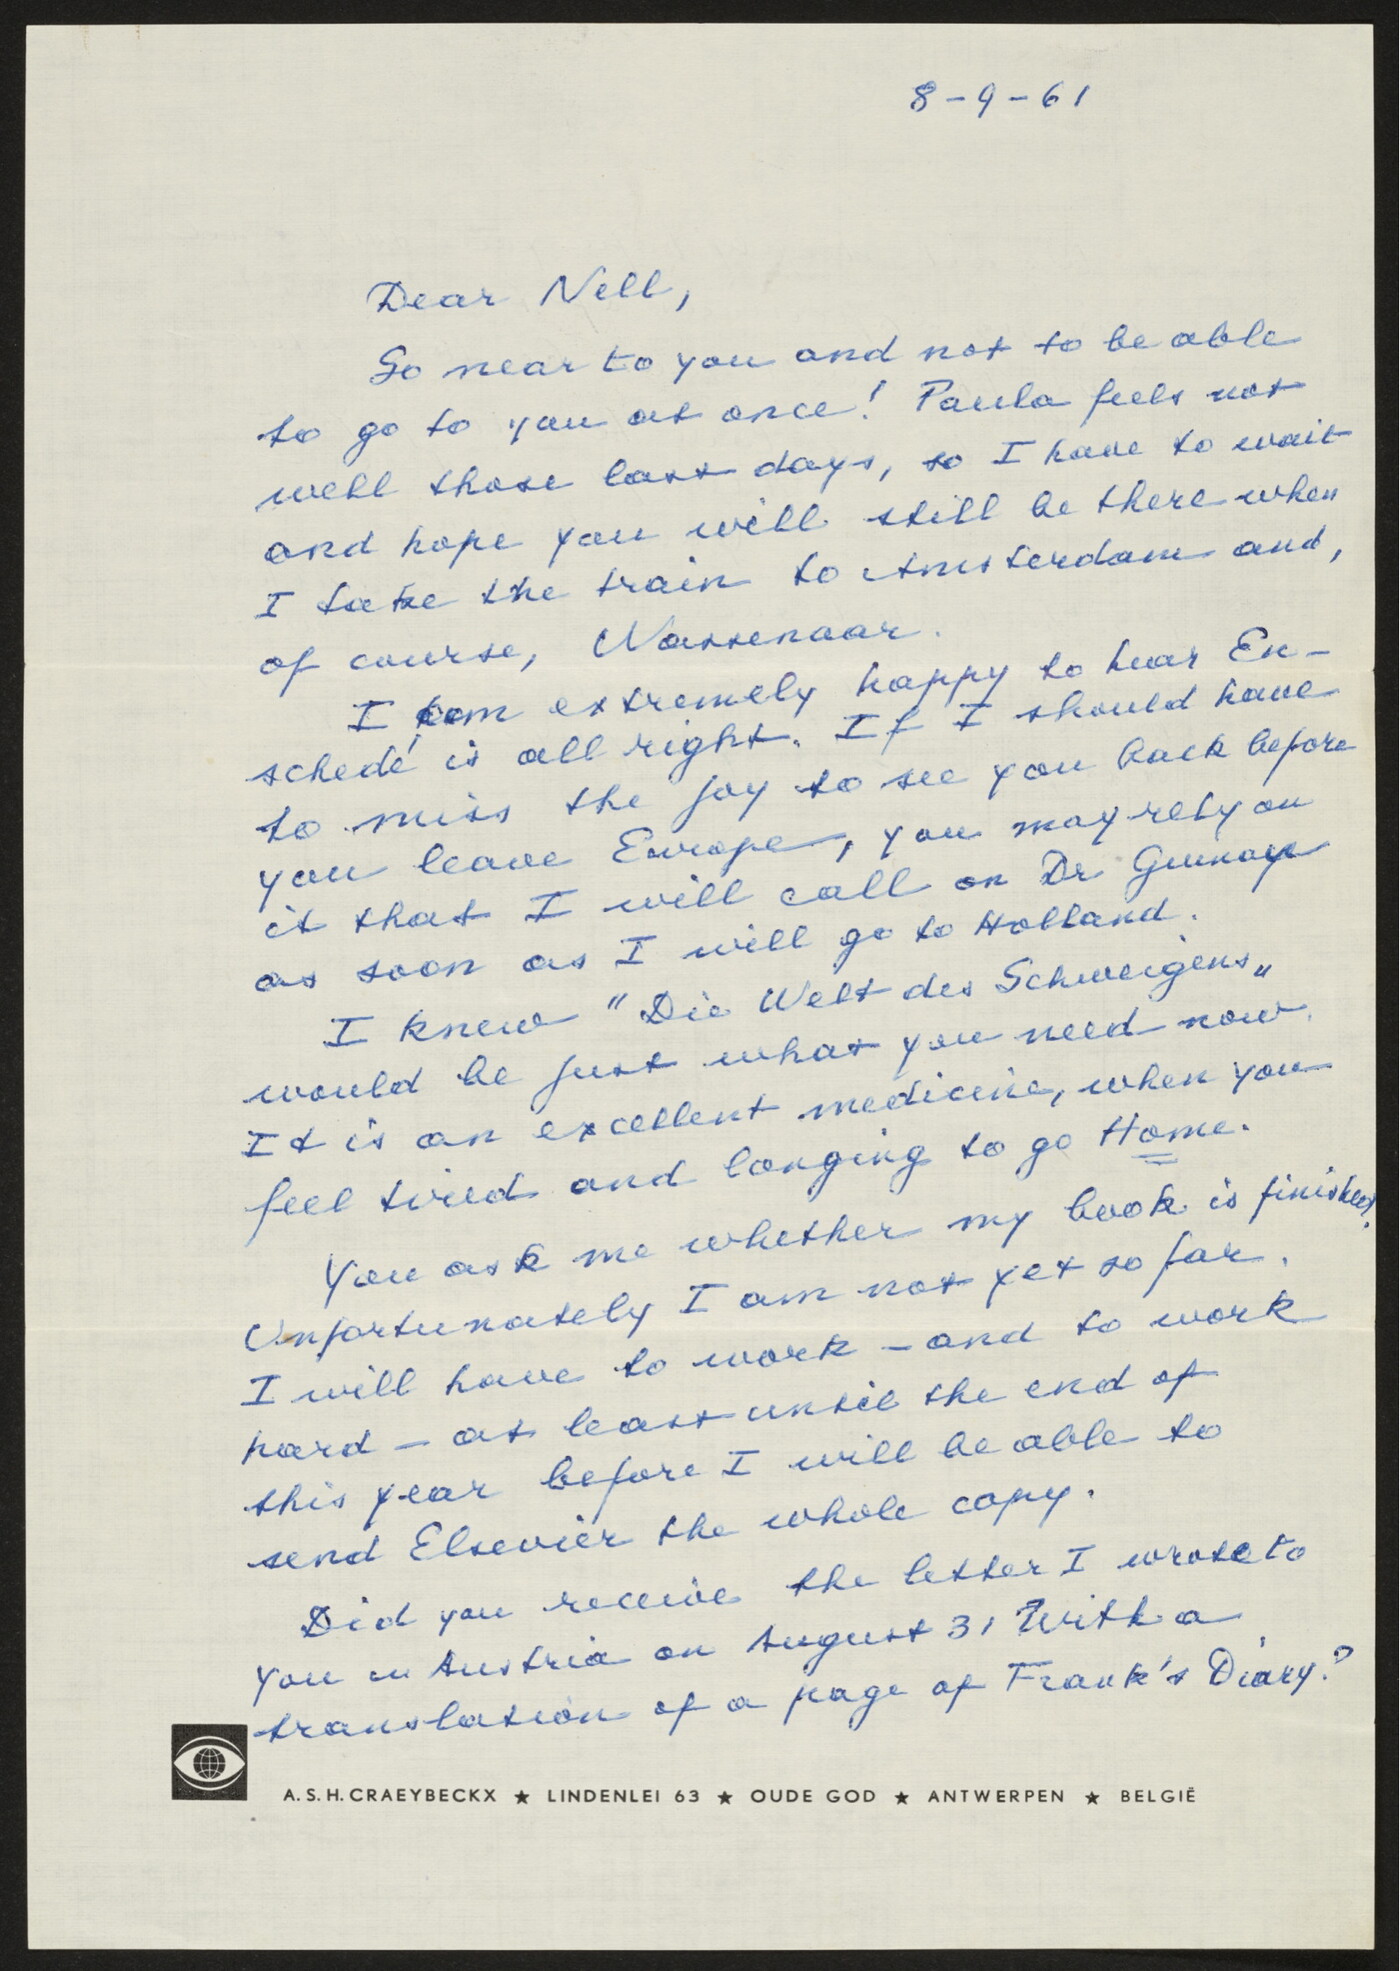 8-9-61
Dear Nell,
So near to you and not to be able
to go to you at once! Paula feels not
well those last days, so I have to wait
and hope you will still be there when
I take the train to Amsterdam and,
of course, Wassenaar.
I am extremely happy to hear En-
schedé is all right. If I should have
to miss the joy to see you back before
you leave Europe, you may rely on
it that I will call on Dr
as soon as I will go to Holland.
I knew "Die Welt des Schweigens„
would be just what you need now.
It is an excellent medicine, when you
feel tired and longing to go Home.
You ask me whether my book is finished.
Unfortunately I am not yet so far.
I will have to work – and to work
hard – at least until the end of
this year before I will be able to
send Elsevier the whole copy.
Did you receive the letter I wrote to
you in Austria on August 31 With a
translation of a page of Frank's Diary?
A. S. H. CRAEYBECKX ★ LINDENLEI 63 ★ OUDE GOD ★ ANTWERPEN ★ BELGIË